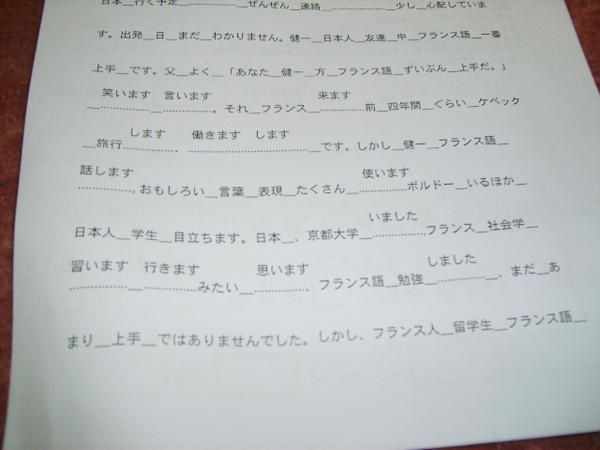 日本__行く予定__................ぜんぜん__連絡__................少し__心配していま
す。出発__日__まだ__わかりません。健一__日本人__友達__中__フランス語__一番
上手__です。父__よく__「あなた__健一__方__フランス語__ずいぶん__上手だ。」
笑います 言います 来ます
__............__...............。それ__フランス...............前__四年間__ぐらい__ケベック
します 働きます します
__旅行...............、................................__です。しかし__健一__フランス語__
話します 使います
...............,おもしろい__言葉__表現__たくさん__..............ボルドー__いるほか__
いました
日本人__学生__目立ちます。日本__、京都大学__...............,フランス__社会学__
習います 行きます 思います しました
................__..............みたい__..............、フランス語__勉強__..............、まだ__あ
まり__上手__ではありませんでした。しかし、フランス人__留学生__フランス語__